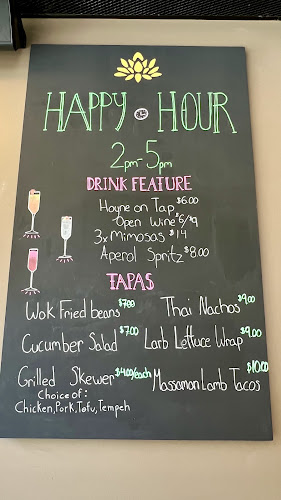 HAPPY HOUR
2pm-5pm
DRINK FEATURE
Hoyne on Tap $6.00
Open Wine $6/$9
3x Mimosas $14
Aperol Spritz $8.00
TAPAS
Wok Fried beans $7.00 Thai Nachos $9.00
Cucumber Salad $7.00 Larb Lettuce Wrap $9.00
Grilled Skewer $4.00/each Massaman Lamb Tacos $10.00
Choice of:
Chicken, Pork, Tofu, Tempeh